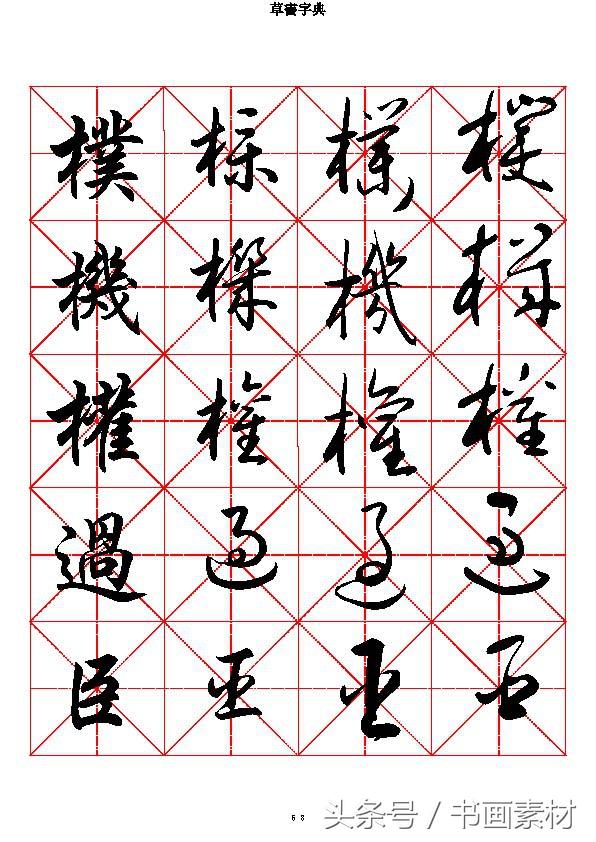 草書字典
樸樸樸樸
機機機機
權權權權
過過過過
臣臣臣臣
68
头条号 / 书画素材